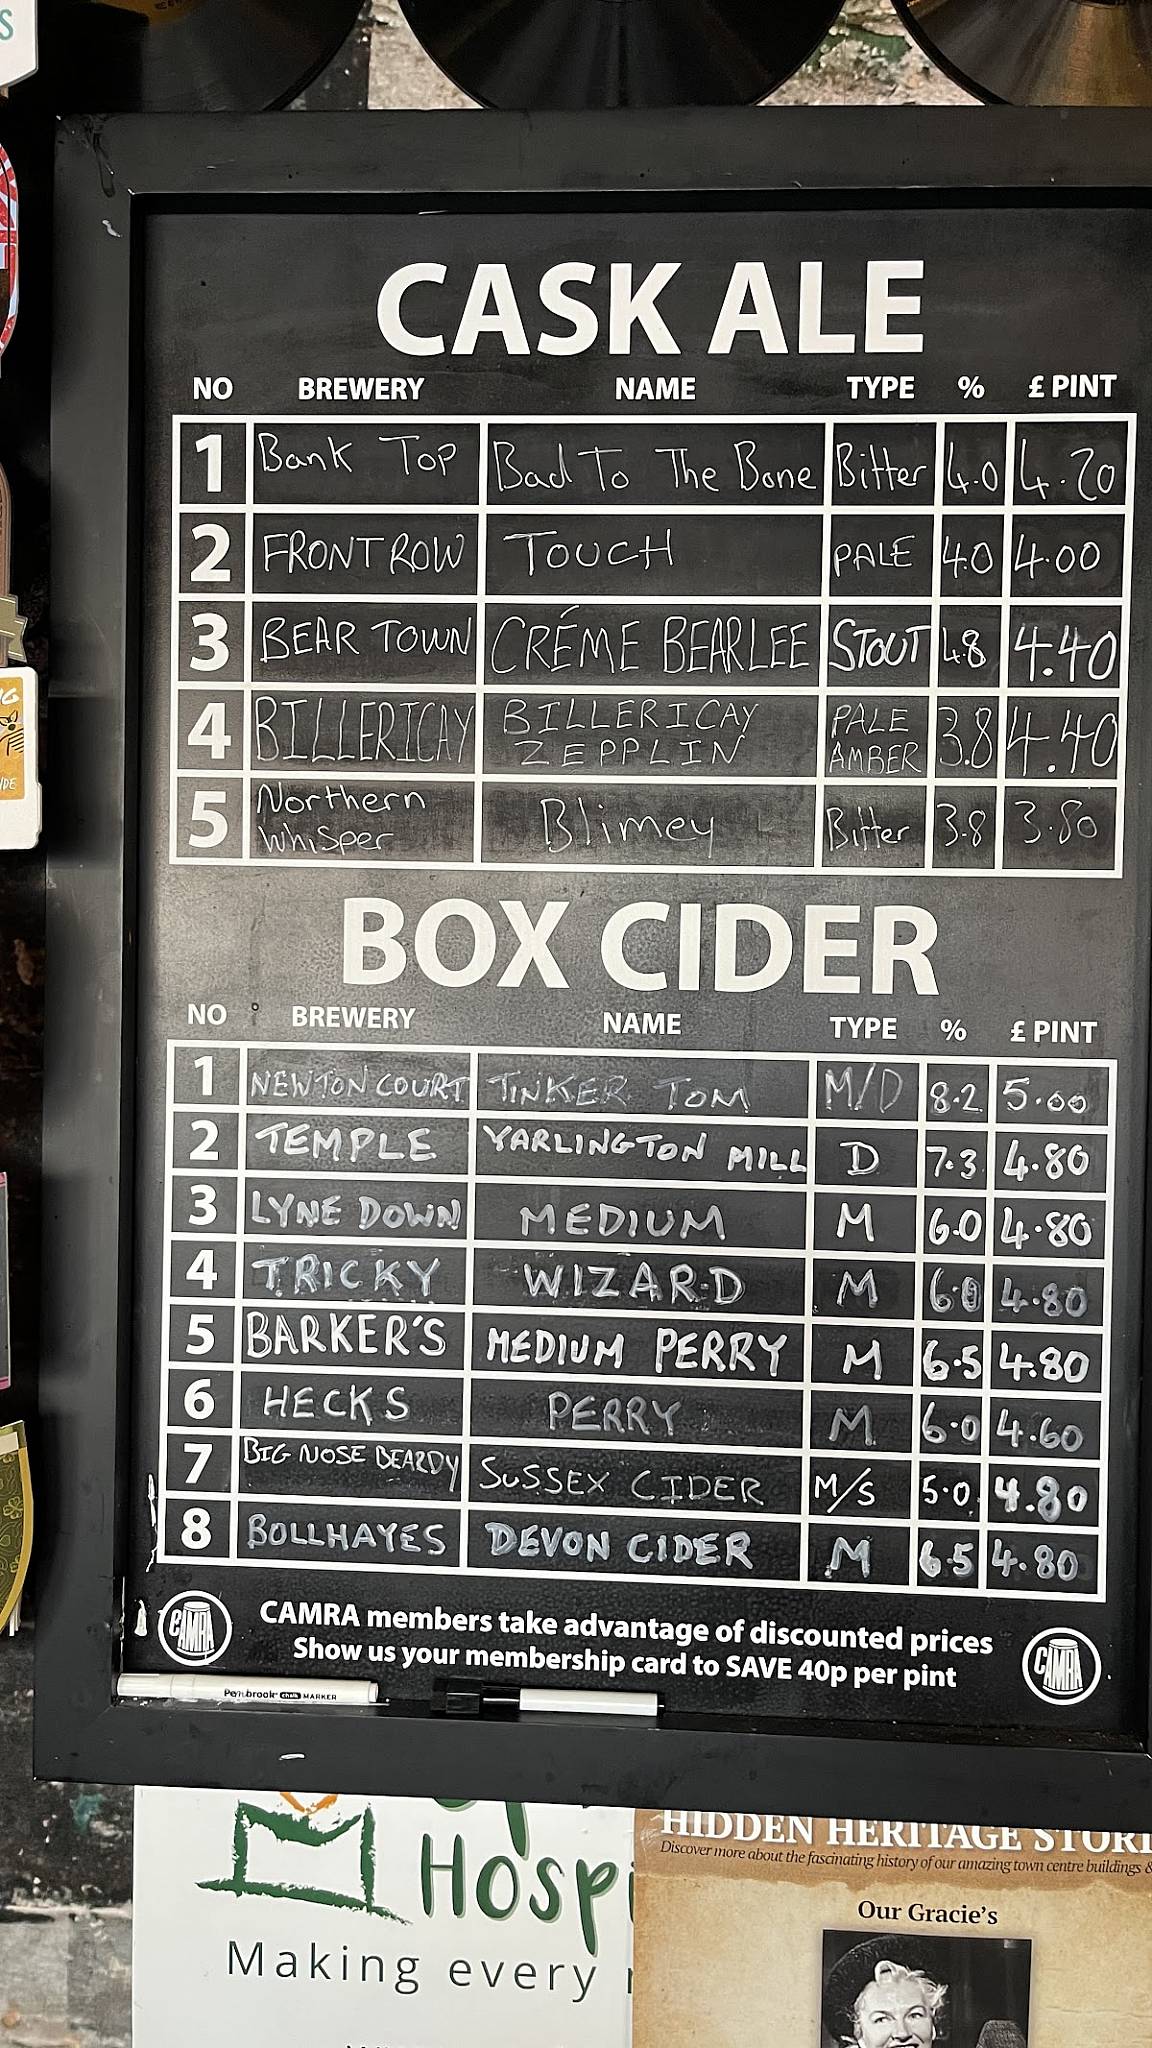 CASK ALE
NO BREWERY NAME TYPE % £ PINT
1 Bank Top Bad To The Bone Bitter 4.0 4.20
2 FRONT ROW TOUCH PALE 4.0 4.00
3 BEAR TOWN CRÉME BEARLEE STOUT 4.8 4.40
4 BILLERICAY BILLERICAY ZEPPLIN PALE AMBER 3.8 4.40
5 Northern Whisper Blimey Bitter 3.8 3.80
BOX CIDER
NO BREWERY NAME TYPE % £ PINT
1 NEWTON COURT TINKER TOM M/D 8.2 5.00
2 TEMPLE YARLINGTON MILL D 7.3 4.80
3 LYNE DOWN MEDIUM M 6.0 4.80
4 TRICKY WIZARD M 6.0 4.80
5 BARKER'S MEDIUM PERRY M 6.5 4.80
6 HECKS PERRY M 6.0 4.60
7 BIG NOSE BEARDY SUSSEX CIDER M/S 5.0 4.80
8 BOLLHAYES DEVON CIDER M 6.5 4.80
CAMRA members take advantage of discounted prices
Show us your membership card to SAVE 40p per pint
CAMRA
CAMRA
Penbrook chalk MARKER
Hospi
Making every
HIDDEN HERITAGE STORI
Discover more about the fascinating history of our amazing town centre buildings &
Our Gracie's